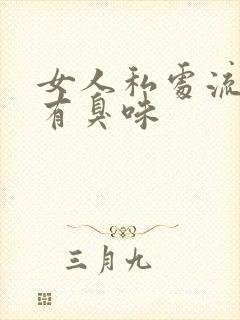 女人私處流
有臭味
三月九